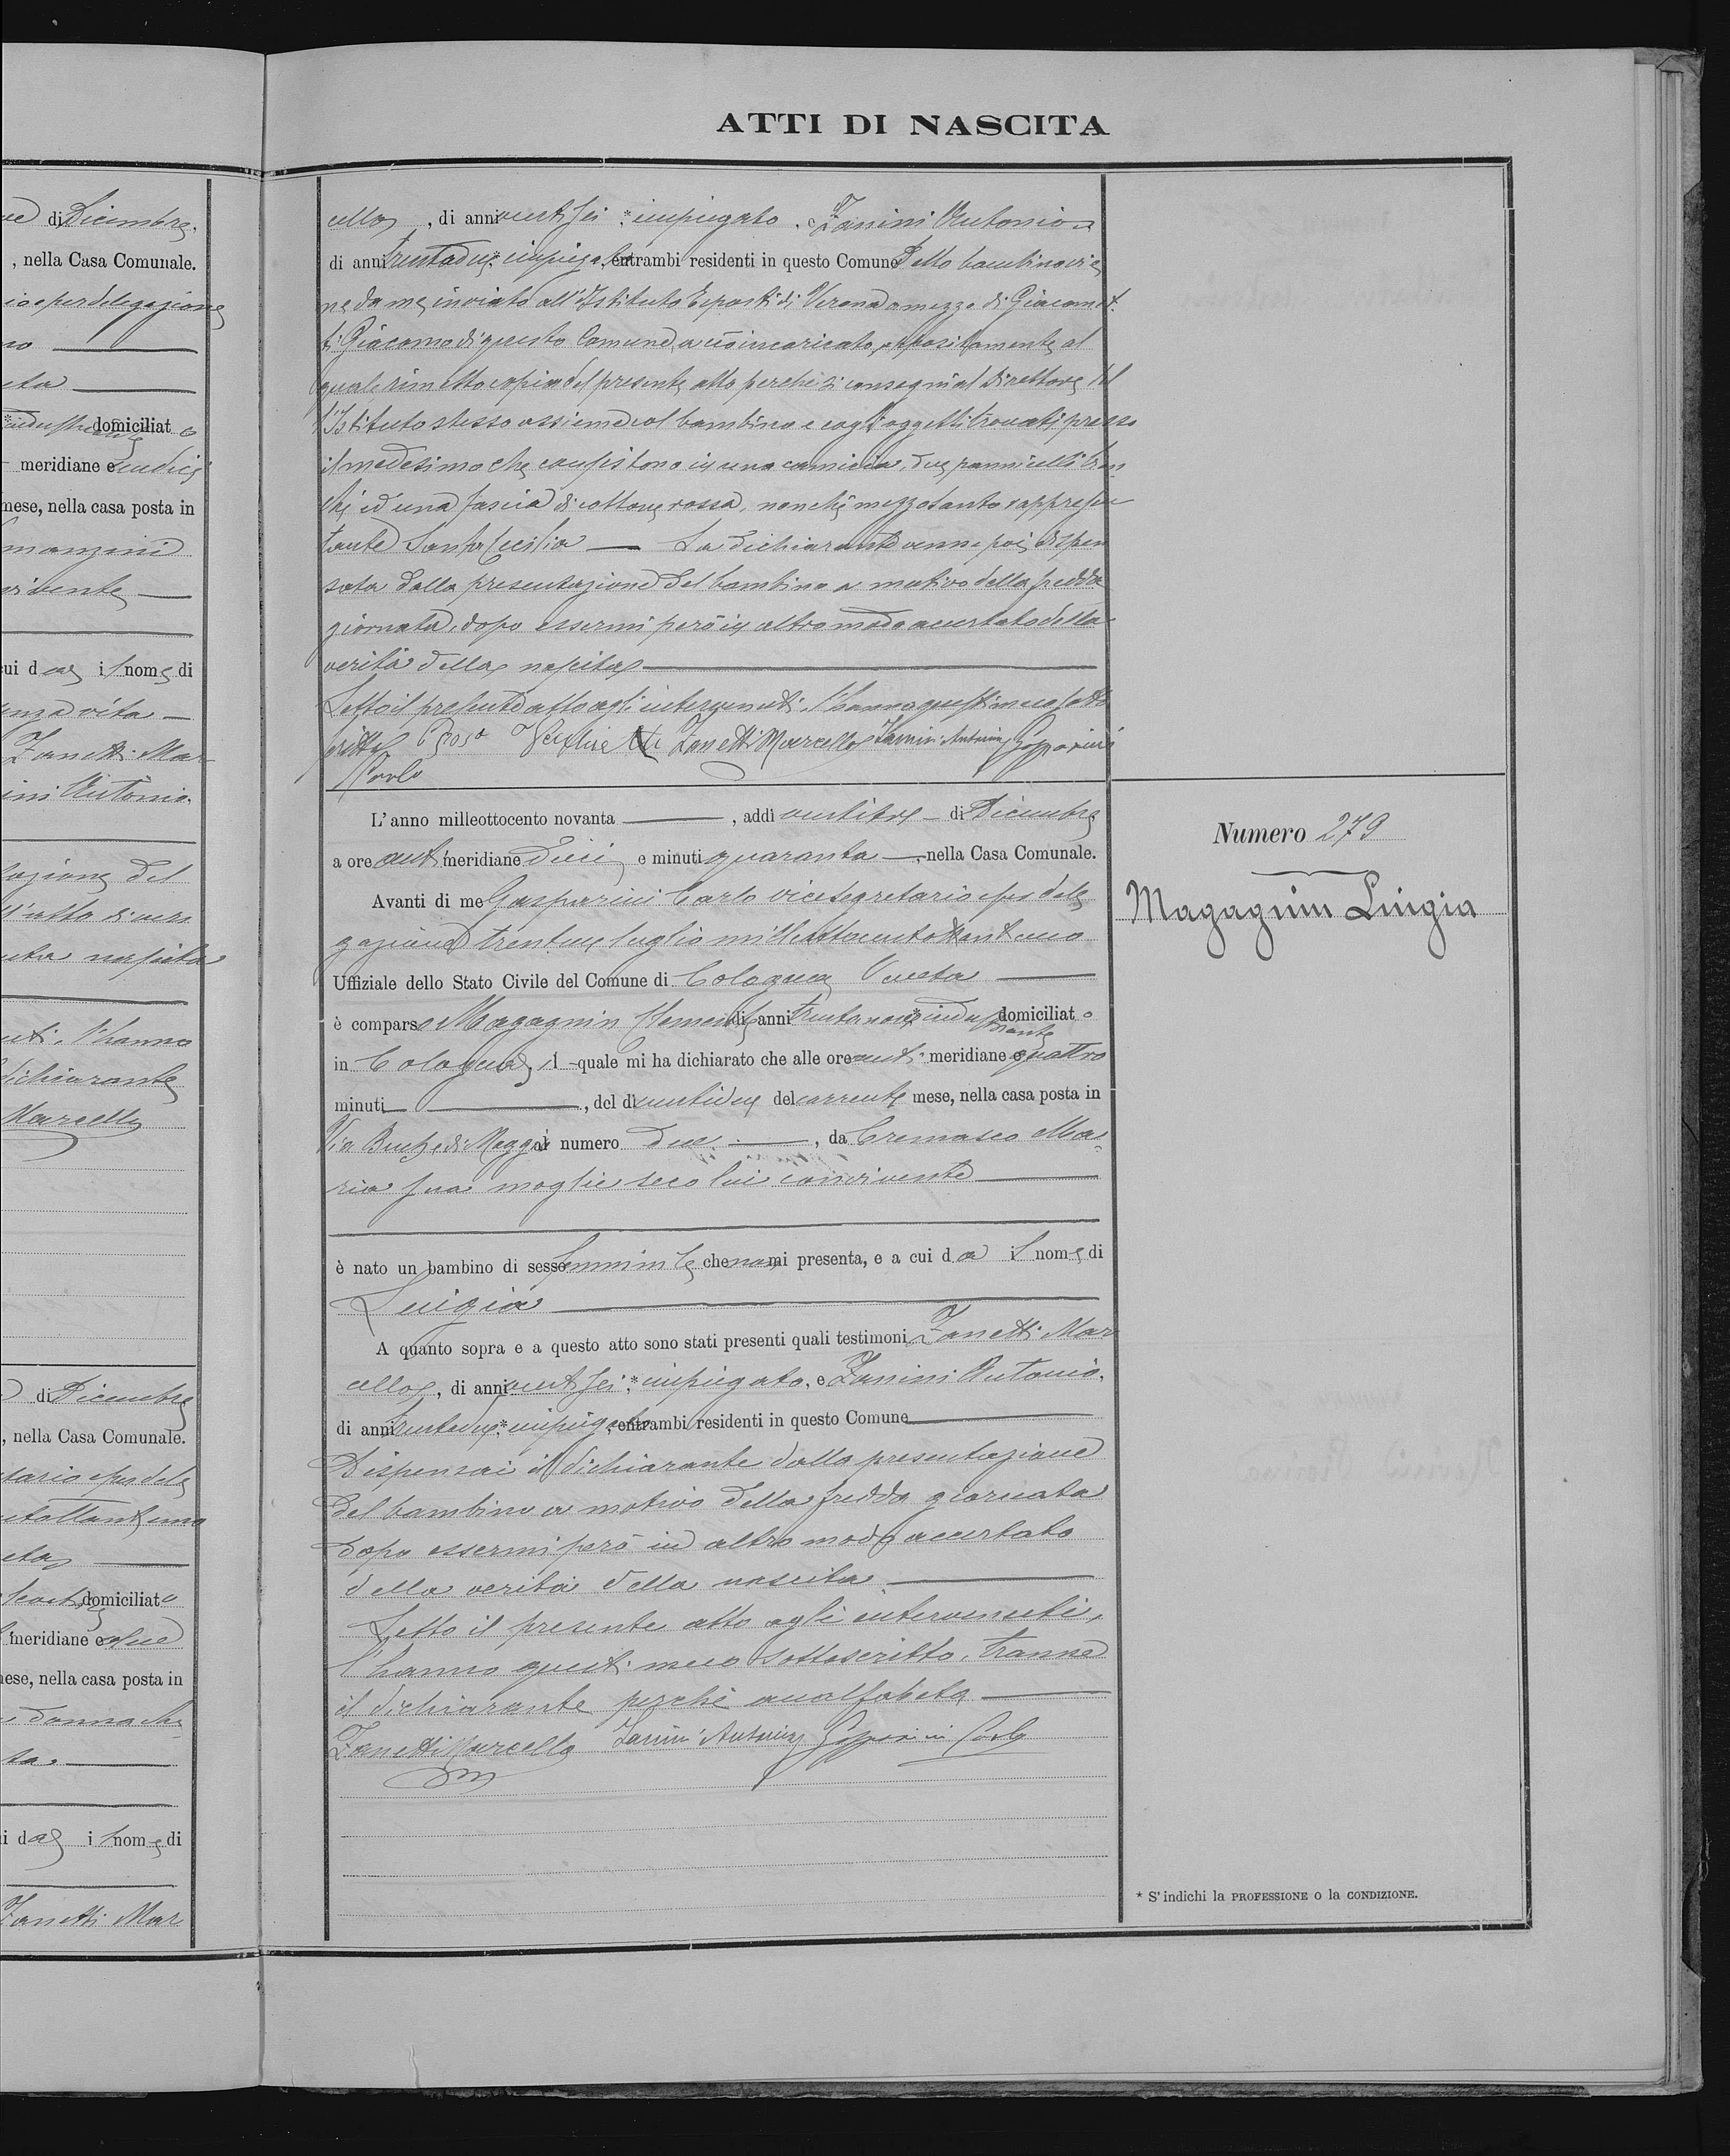 ATTI DI NASCITA
di Dicembre.
, nella Casa Comunale.
io e per delegazione
domiciliato
meridiane e undici
mese, nella casa posta in
cui da il nome di
senza vita —
Zanetti Mar
ini Antonio.
del
nascita
l'hanno
dichiarante
Marcello
di Dicembre
, nella Casa Comunale.
tario e per dele
domiciliato
meridiane e
mese, nella casa posta in
donna che
i da il nome di
Zanetti Mar
cello, di anni ventisei * impiegato, e Zanini Antonio
di anni trentadue * impiegato, entrambi residenti in questo Comune Detto bambino vie
ne da me inviato all'Istituto Esposti di Verona a mezzo di Giacomet
ti Giacomo di questo Comune, a ciò incaricato appositamente al
quale rimetto copia del presente atto perché si consegni al Direttore del
l'Istituto stesso assieme col bambino e cogli oggetti trovati presso
il medesimo che consistono in una camicia, due pannicelli bian
chi ed una fascia di cottone rossa, nonché mezzo santo rappresen
tante Santa Cecilia — La dichiarante venne poi dispen
sata dalla presentazione del bambino a motivo della fredda
giornata, dopo essermi però in altro modo accertato della
verità della nascita
Letto il presente atto agli intervenuti, l'hanno questi meco sotto
scritto Zanetti Marcello Zanini Antonio Gasparini
Carlo
L'anno milleottocento novanta — , addì ventitre — di Dicembre
a ore anti meridiane dieci e minuti quaranta —, nella Casa Comunale.
Avanti di me Gasparini Carlo vicesegretario e per dele
gazione trentuno luglio milleottocentottantuno
Uffiziale dello Stato Civile del Comune di Cologna Veneta —
è comparso Magagnin Clemente, di anni trentanove * industriante domiciliato
in Cologna, il quale mi ha dichiarato che alle ore anti meridiane quattro e
minuti — , del dì ventidue del corrente mese, nella casa posta in
Via Buche di Maggio al numero due — , da Cremasco Ma
ria sua moglie seco lui convivente —
è nato un bambino di sesso femminile che non mi presenta, e a cui da il nome di
Luigia —
A quanto sopra e a questo atto sono stati presenti quali testimoni Zanetti Mar
cello, di anni ventisei, * impiegato, e Zanini Antonio,
di anni trentadue, * impiegato, entrambi residenti in questo Comune —
Dispensai il dichiarante dalla presentazione
del bambino a motivo della fredda giornata
dopo essermi però in altro modo accertato
della verità della nascita —
Letto il presente atto agli intervenuti,
l'hanno questi meco sottoscritto, tranne
il dichiarante perché analfabeta —
Zanetti Marcello Zanini Antonio Gasparini Carlo
Numero 279
Magagnin Luigia
* S'indichi la PROFESSIONE o la CONDIZIONE.